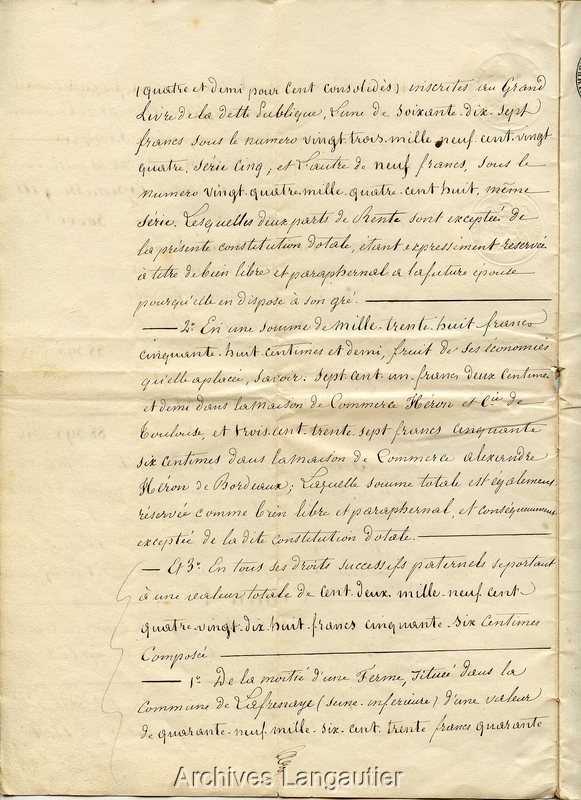 (quatre et demi pour Cent consolidés) inscrites au Grand
Livre de la dette Publique, L'une de soixante-dix-sept
francs sous le numero vingt-trois-mille-neuf-cent-vingt
quatre, série cinq; et L'autre de neuf francs, sous le
numero vingt-quatre-mille-quatre-cent-huit, même
série. Lesquelles deux parts de Rente sont exceptées de
la présente constitution dotale, étant expressement reservées
à titre de bien libre et paraphernal a la future épouse
pour qu'elle en dispose à son gré.
— 2º En une somme de Mille-trente-huit-francs
cinquante-huit centimes et demi, fruit de ses économies
qu'elle a placée, savoir: sept cent un francs deux Centimes
et demi dans la Maison de Commerce Héron et Cie de
Toulouse, et trois-cent trente sept francs cinquante
six centimes dans la maison de Commerce alexandre
Héron de Bordeaux; Laquelle somme totale est également
réservée comme bien libre et paraphernal, et conséquemment
exceptée de la dite constitution dotale.
— Et 3º En tous ses droits successifs paternels se portant
à une valeur totale de cent-deux-mille-neuf cent
quatre-vingt-dix-huit-francs cinquante-six centimes
Composée
— 1º De la moitié d'une Ferme, située dans la
Commune de Lafresnaye (seine-inferieure) d'une valeur
de quarante-neuf-mille-six-cent-trente francs quarante
Archives Langautier